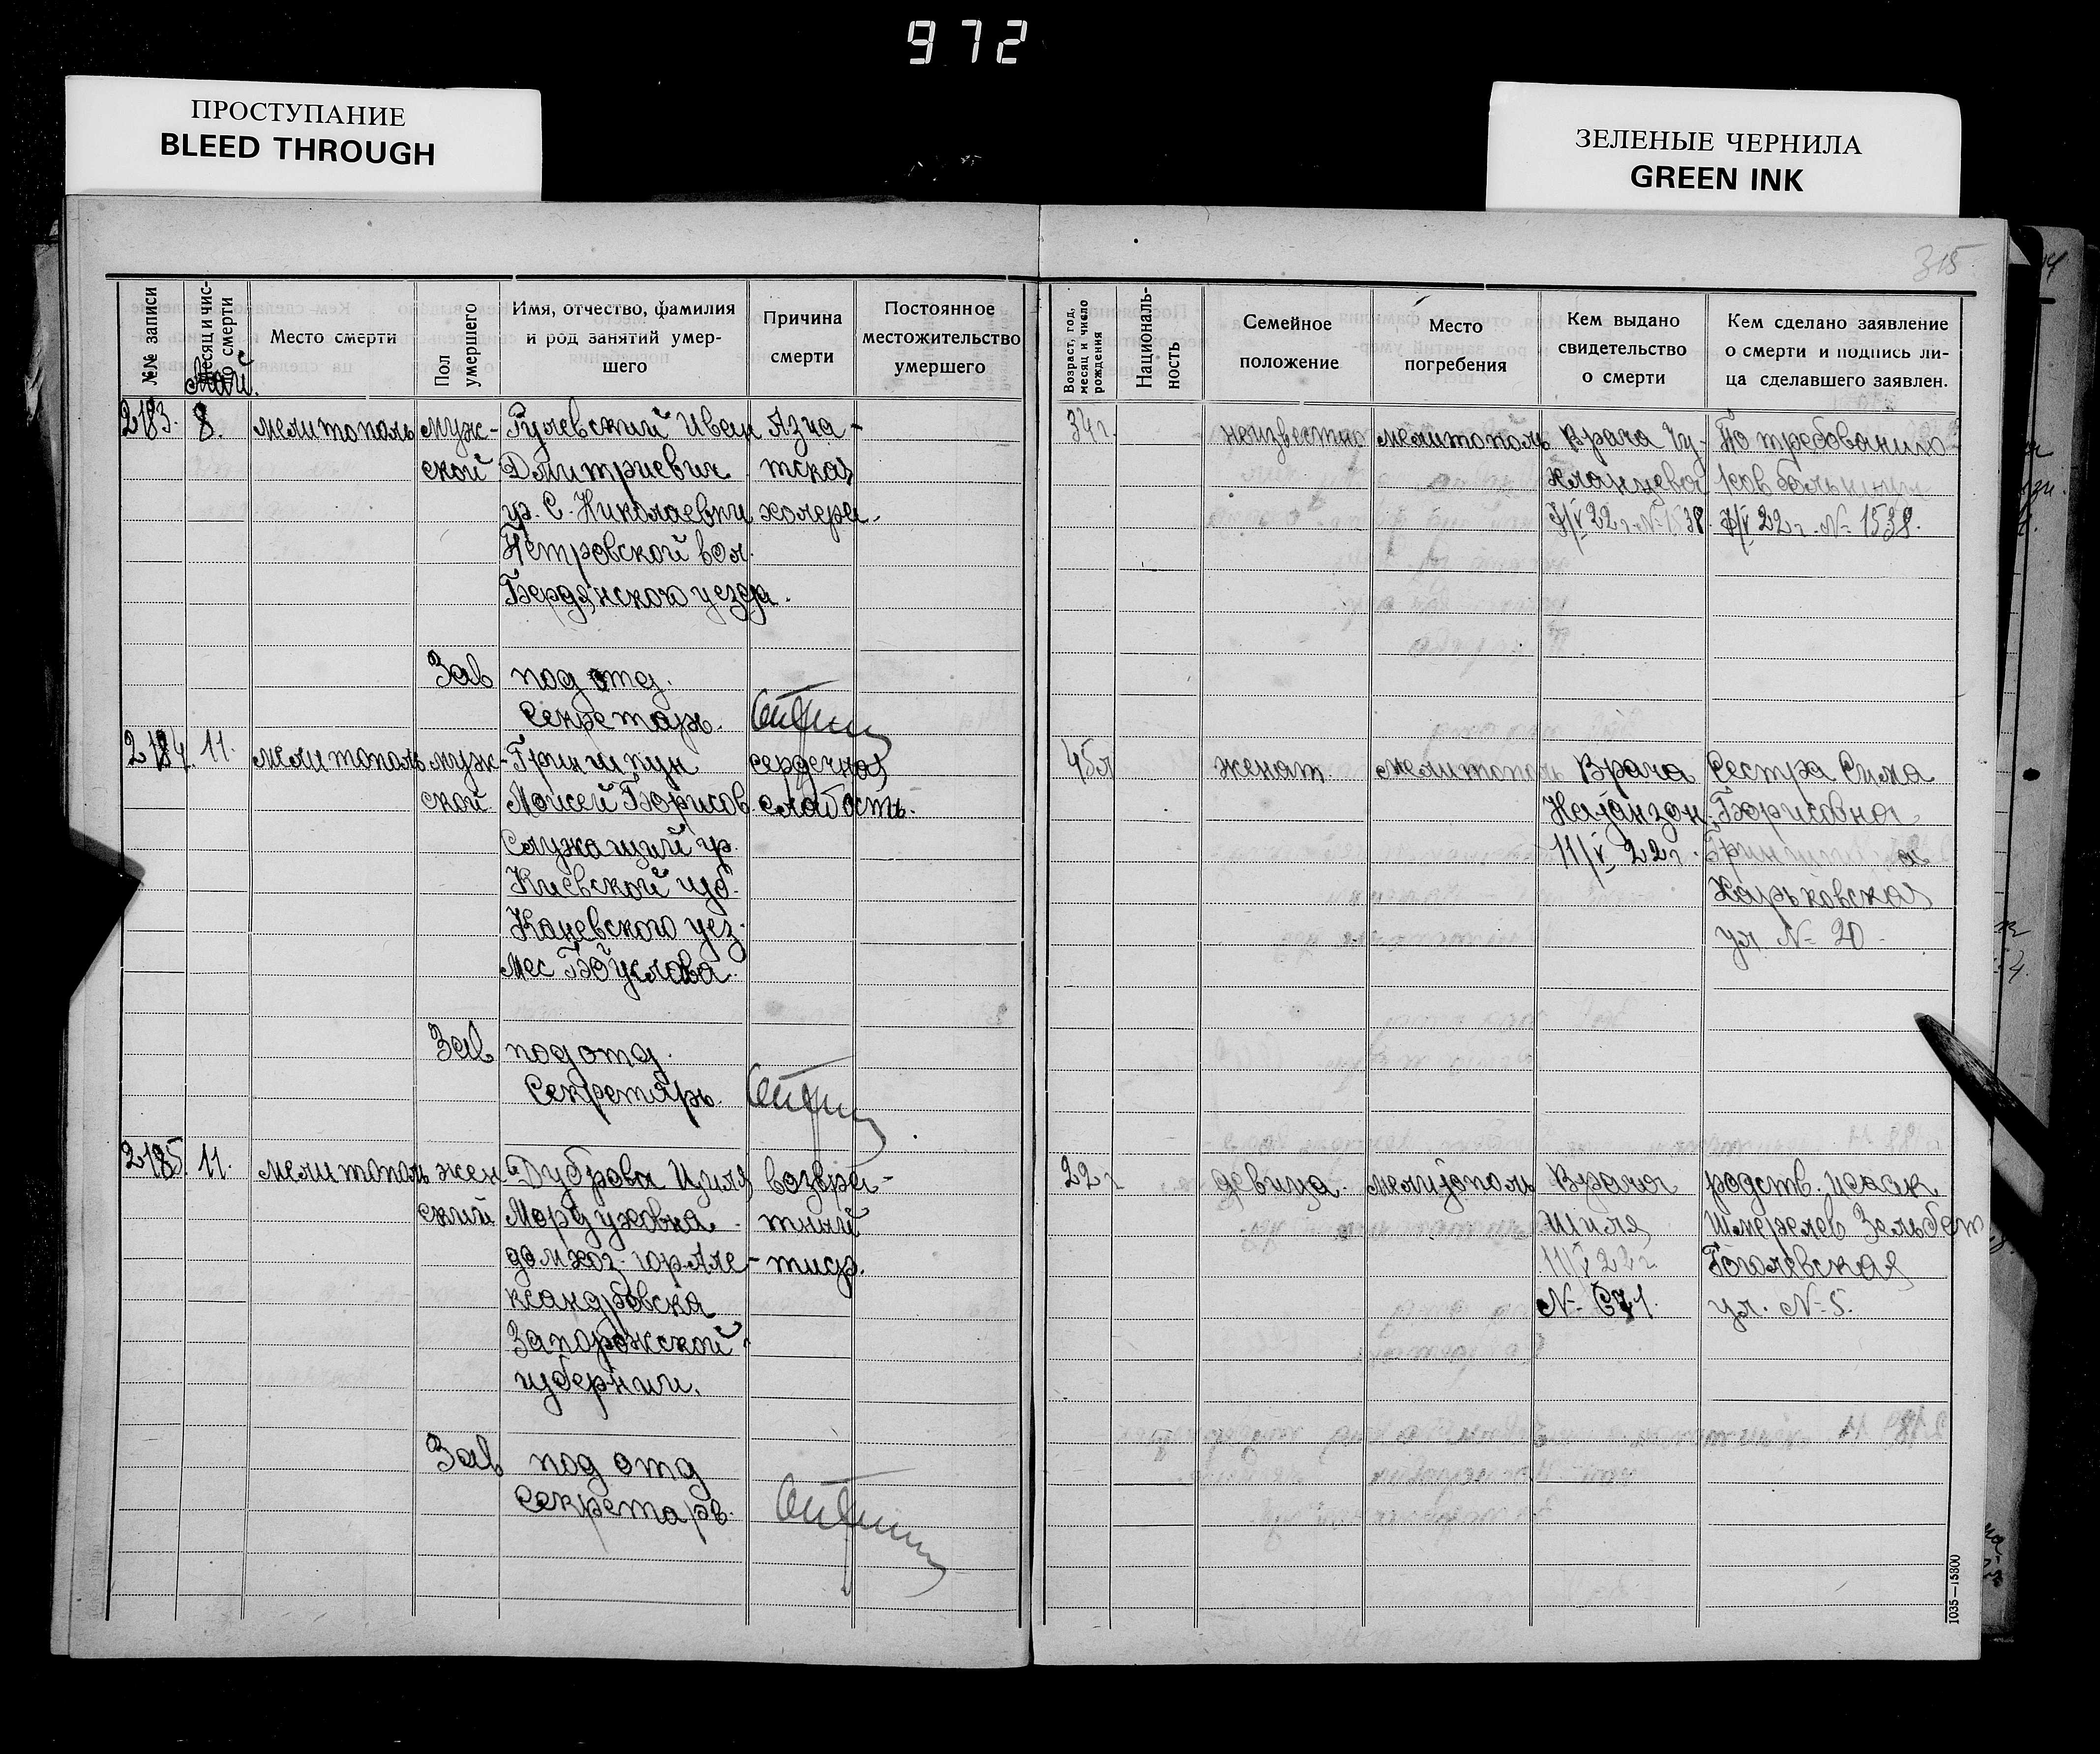 972
ПРОСТУПАНИЕ
BLEED THROUGH
ЗЕЛЕНЫЕ ЧЕРНИЛА
GREEN INK
315
№№ записи
Месяц и чис-
ло смерти
Место смерти
Пол
умершего
Имя, отчество, фамилия
и род занятий умер-
шего
Причина
смерти
Постоянное
местожительство
умершего
Возраст, год,
месяц и число
рождения
Националь-
ность
Семейное
положение
Место
погребения
Кем выдано
свидетельство
о смерти
Кем сделано заявление
о смерти и подпись ли-
ца сделавшего заявлен.
Май.
2183. 8. мелитополь муж- Гулевский Иван Азиа-
ской Дмитриевич тская
гр. С. Николаевки холера.
Петровской вол.
Бердянского уезда.
Зав под отд.
Секретарь.
34 г. неизвестно мелитополь Врача По требованию
22 г. № 1538 22 г. № 1538.
2184. 11. мелитополь муж- Гриншпун сердечная
ской Моисей Борисов. слабость.
Служащий гр.
Киевской губ.
Каневского уез.
мес
Зав под отд.
Секретарь
45 л женат мелитополь Врача Сестра Сима
Борисовна
11/V 22 г.
Харьковская
ул № 20.
2185. 11. мелитополь жен Дуброва Циля возвра-
ский Мордуховна тный
домхоз. гор Але- тиф.
ксандровска
Запорожской
губернии.
Зав под отд
Секретарь.
22 г девица. мелитополь Врача родств. Исаак
Шмерелев
11/V 22 г. Гоголевская
ул. № 5.
1035—15800